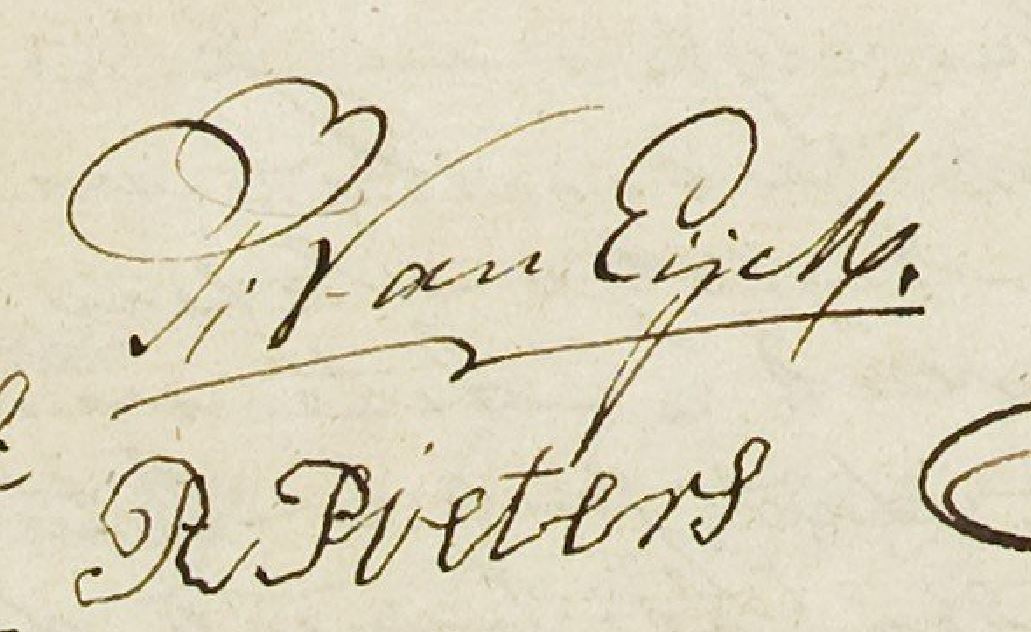 Van Eijck.
R Pieters